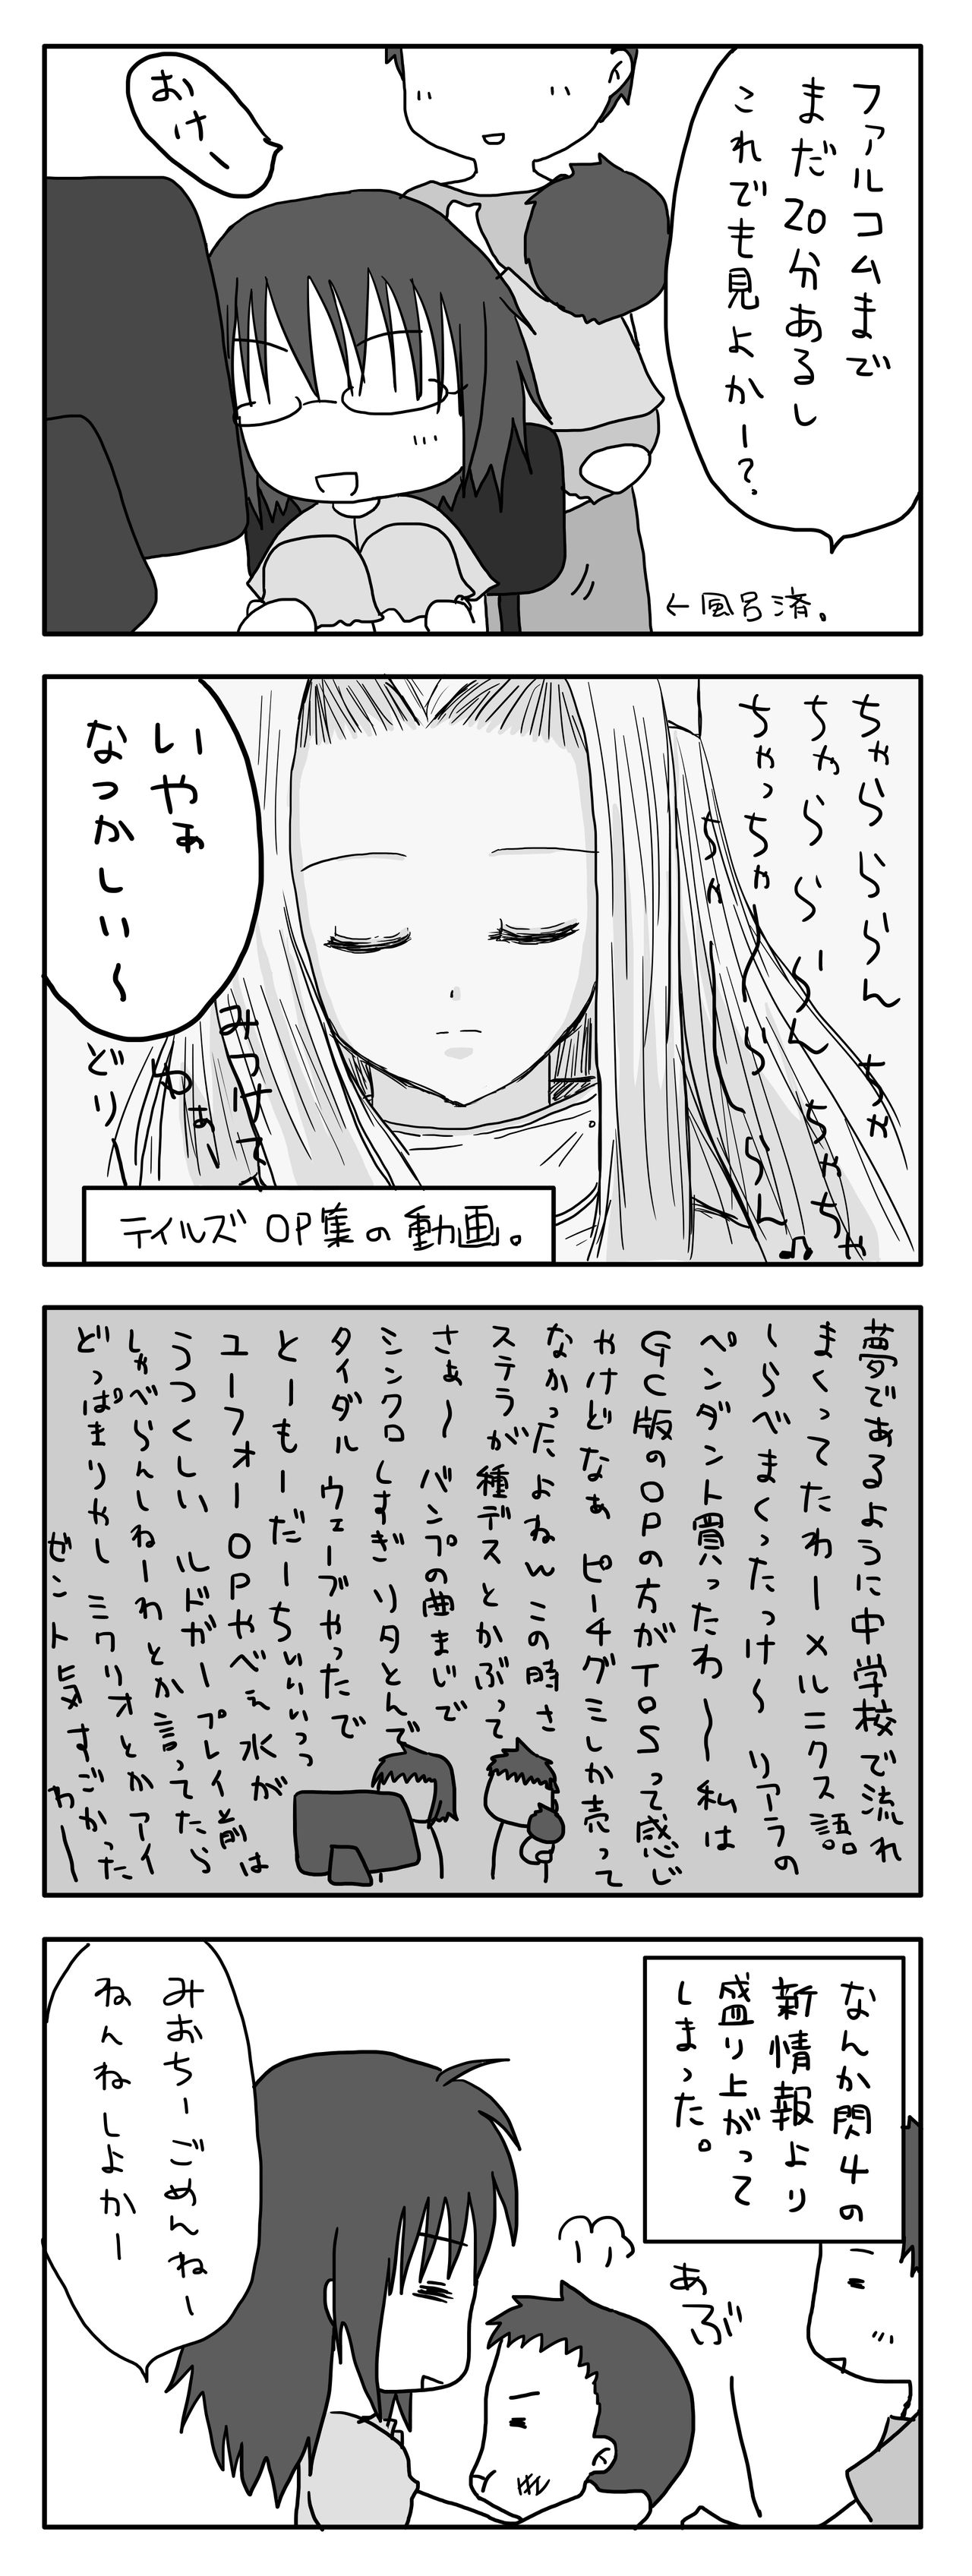 ファルコムまで
まだ20分あるし
これでも見よかー?
おけー
←風呂済。
ちゃらららん ちゃ
ちゃらららん ちゃちゃ
ちゃっちゃ〜らん
ちゃ〜らん♫
いやぁ
なっかしい〜
みつけて
ゆぁー
どりー
テイルズOP集の動画。
夢であるように中学校で流れ
まくってたわー メルニクス語
しらべまくったっけ〜 リアラの
ペンダント買ったわ〜 私は
GC版のOPの方がTOSって感じ
やけどなぁ ピー4グミしか売って
なかったよねw この時さ
ステラが種デスとかぶって
さぁ〜 バンプの曲まじで
シンクロしすぎ リタとんで
タイダルウェーブやったで
とーもーだーちぃぃっっ
ユーフォーOPやべぇ水が
うつくしい ルドガープレイ前は
しゃべらんしねーわとか言ってたら
どっぱまりやし ミクリオとかアイ
ゼント気すごかったわー
なんか閃4の
新情報より
盛り上がって
しまった。
あぶ
みおちーごめんねー
ねんねしよかー